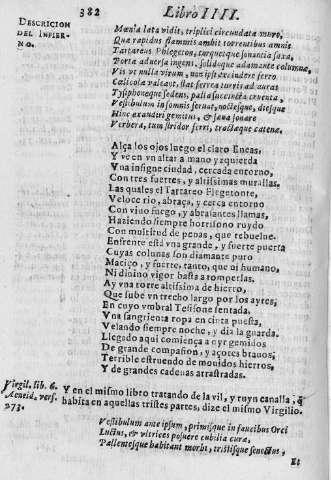 382 Libro IIII.
DESCRICION
DEL INFIER-
NO.
Mœnia lata vidit, triplici circundata muro,
Quæ rapidus flammis ambit torrentibus amnis
Tartareus Phlegeton, torquetque sonantia saxa,
Porta aduersa ingens, solidoque adamante columnæ,
Vis vt nulla virum, non ipsi excindere ferro
Cœlicolæ valeant, stat ferrea turris ad auras
Tysiphoneque sedens, palla succincta cruenta,
Vestibulum insomnis seruat, noctesque, diesque
Hinc exaudiri gemitus, & sæua sonare
Verbera, tum stridor ferri, tractæque catenæ.
Alça los ojos luego el claro Eneas,
Y ve en vn altar a mano yzquierda
Vna insigne ciudad, cercada entorno,
Con tres fuertes, y altissimas murallas,
Las quales el Tartareo Flegetonte,
Veloce rio, abraça, y cerca entorno
Con viuo fuego, y abrasantes llamas,
Haziendo siempre horrisono ruydo
Con multitud de penas, que rebuelue.
Enfrente está vna grande, y fuerte puerta
Cuyas colunas son diamante puro
Maciço, y fuerte, tanto, que ni humano,
Ni diuino vigor basta a romperlas.
Ay vna torre altissima de hierro,
Que sube vn trecho largo por los ayres,
En cuyo vmbral Tesifone sentada,
Vna sangrienta ropa en cinta puesta,
Velando siempre noche, y dia la guarda.
Llegado aqui comiença a oyr gemidos
De grande compassion, y açotes brauos;
Terrible estruendo de mouidos hierros,
Y de grandes cadenas arrastradas.
Virgil. lib. 6.
Aeneid. vers.
273.
Y en el mismo libro tratando de la vil, y ruyn canalla, q̃
habita en aquellas tristes partes, dize el mismo Virgilio.
Vestibulum ante ipsum, primisque in faucibus Orci
Luctus, & vltrices posuere cubilia curæ,
Pallentesque habitant morbi, tristisque senectus,
Et